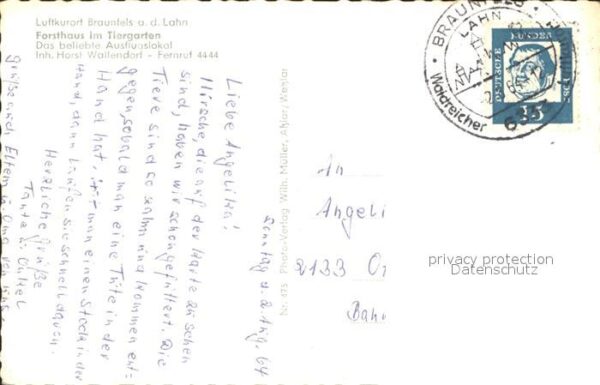 Luftkurort Braunfels a. d. Lahn
Forsthaus im Tiergarten
Das beliebte Ausflugslokal
Inh. Horst Wallendorf - Fernruf 4444
Sonntag d. 2 Aug. 64
Liebe Angelika!
Hirsche, die auf der Karte zu sehen
sind, haben wir schon gefüttert. Die
Tiere sind so zahm und kommen ent-
gegen, sobald man eine Tüte in der
Hand hat. Hat man einen Stock in der
Hand, dann laufen sie schnell davon.
Herzliche Grüße
Tante u. Onkel
Grüße auch Eltern u. Oma von uns
Nr. 475 Photo-Verlag Wilh. Müller, Wetzlar
An
Angeli
2133
Bahn
BRAUNFELS
LAHN
Waldreicher
DEUTSCHE BUNDESPOST
15
privacy protection
Datenschutz